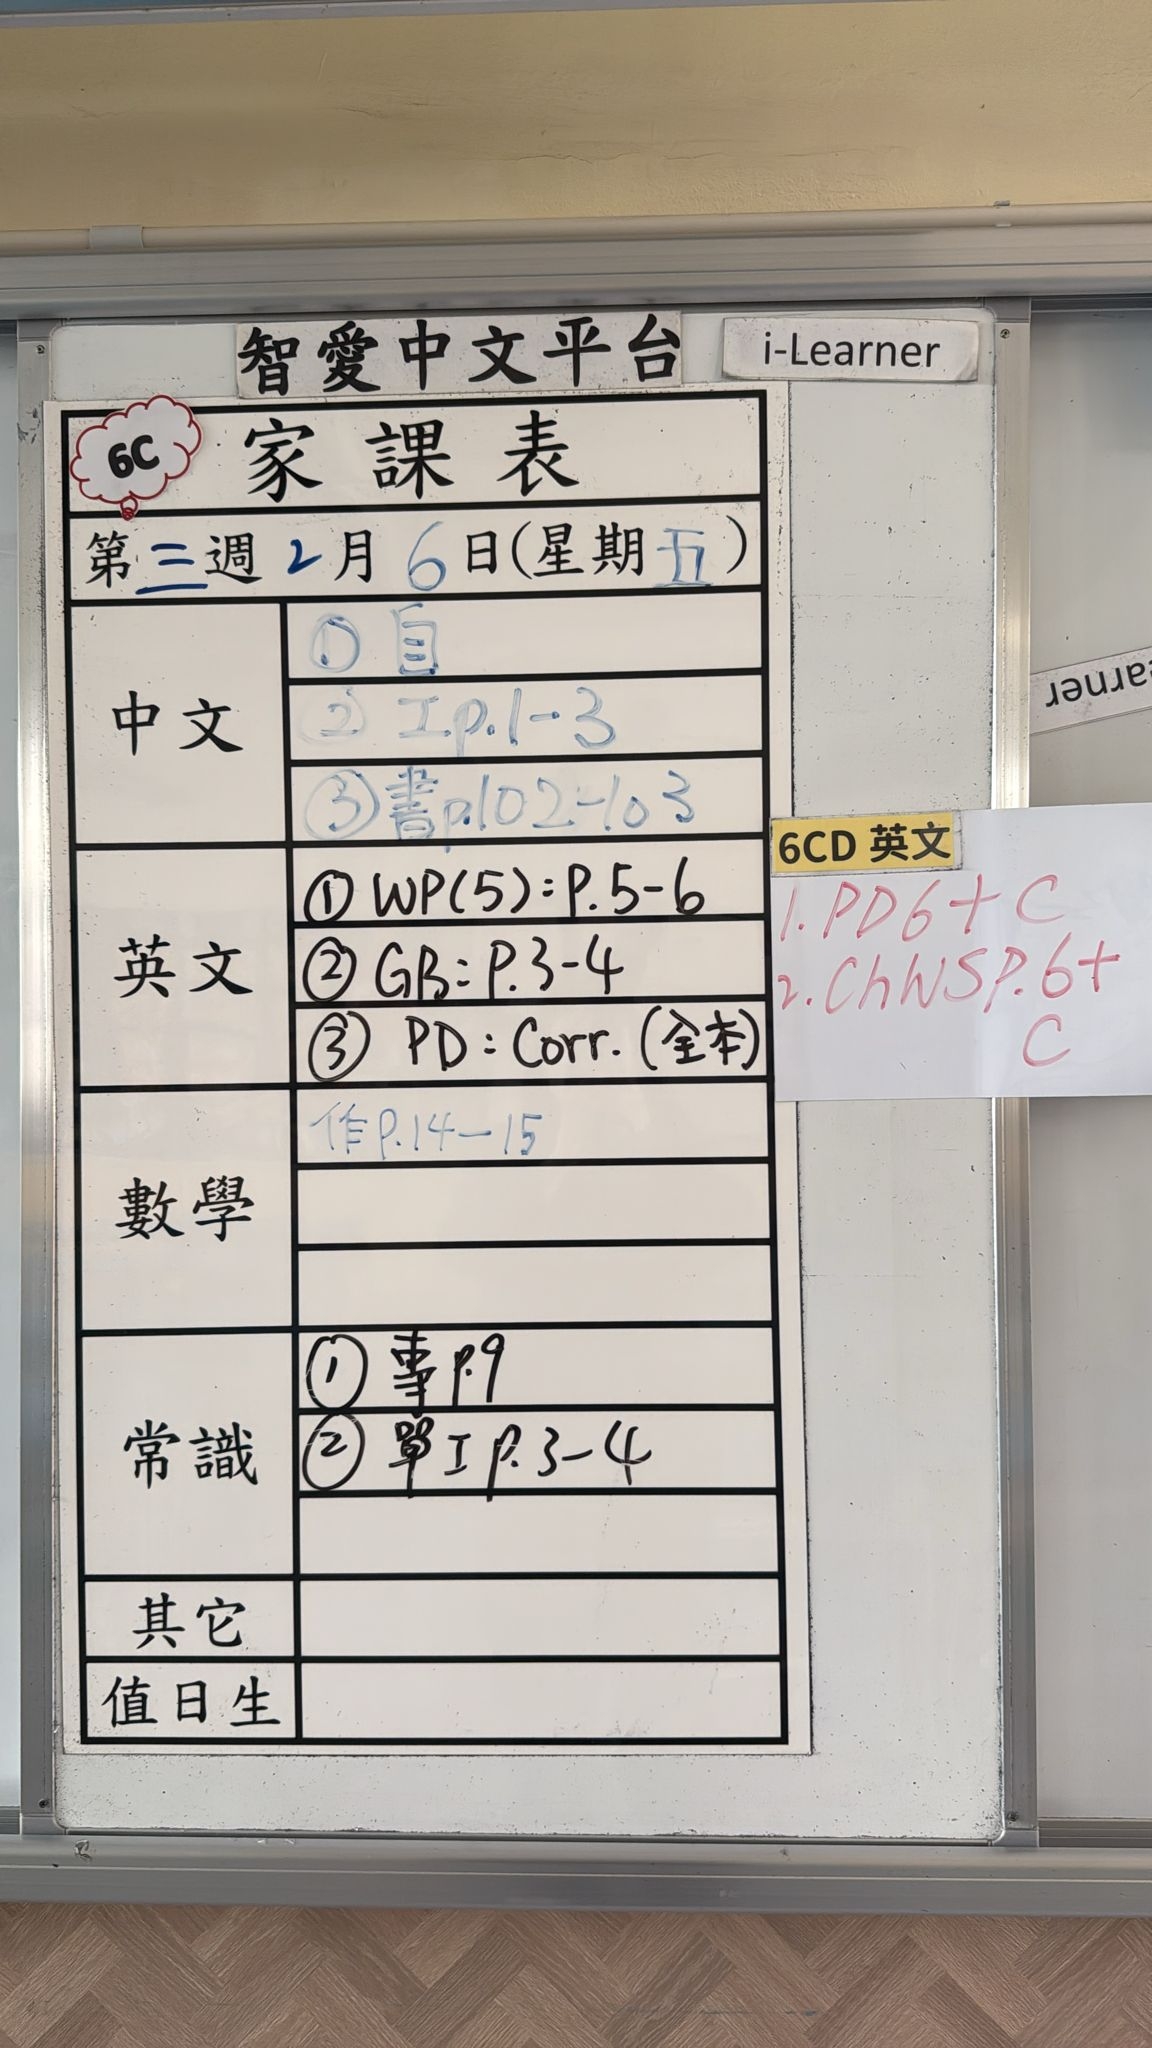 智愛中文平台 i-Learner
6C 家課表
第三週2月6日(星期五)
中文
① 自
② 工p.1-3
③ 書p.102-103
英文
① WP(5):P.5-6
② GB:P.3-4
③ PD:Corr.(全本)
數學
作P.14-15
常識
① 事p.9
② 單工p.3-4
其它
值日生
6CD 英文
1. PD6+C
2. ChWSP.6+
C
earner